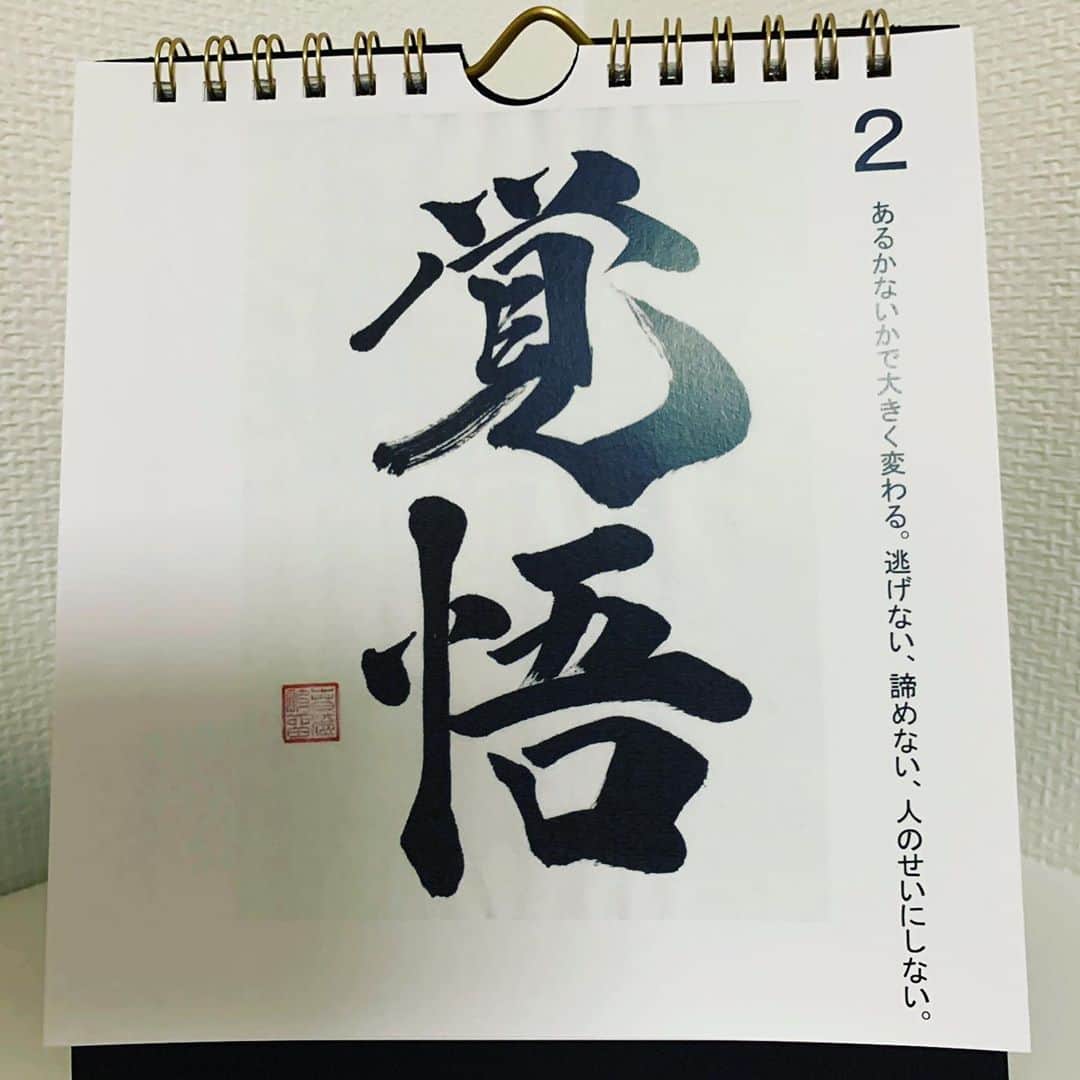 2
あるかないかで大きく変わる。逃げない、諦めない、人のせいにしない。
覚悟